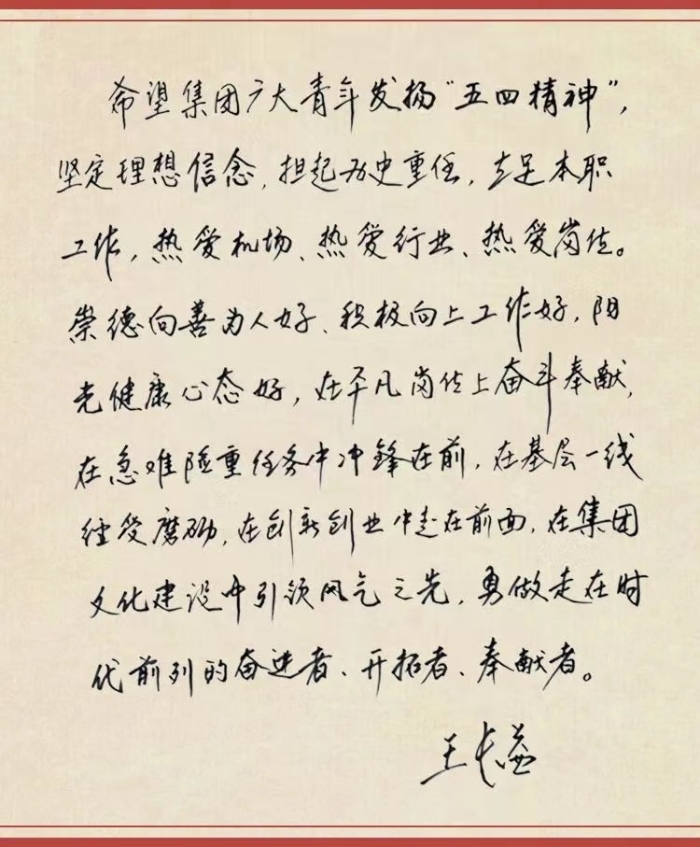 希望集团广大青年发扬“五四精神”，
坚定理想信念，担起历史重任，立足本职
工作，热爱机场、热爱行业、热爱岗位。
崇德向善为人好、积极向上工作好，阳
光健康心态好，在平凡岗位上奋斗奉献，
在急难险重任务中冲锋在前，在基层一线
经受磨砺，在创新创业中走在前面，在集团
文化建设中引领风气之先，勇做走在时
代前列的奋进者、开拓者、奉献者。
王长益